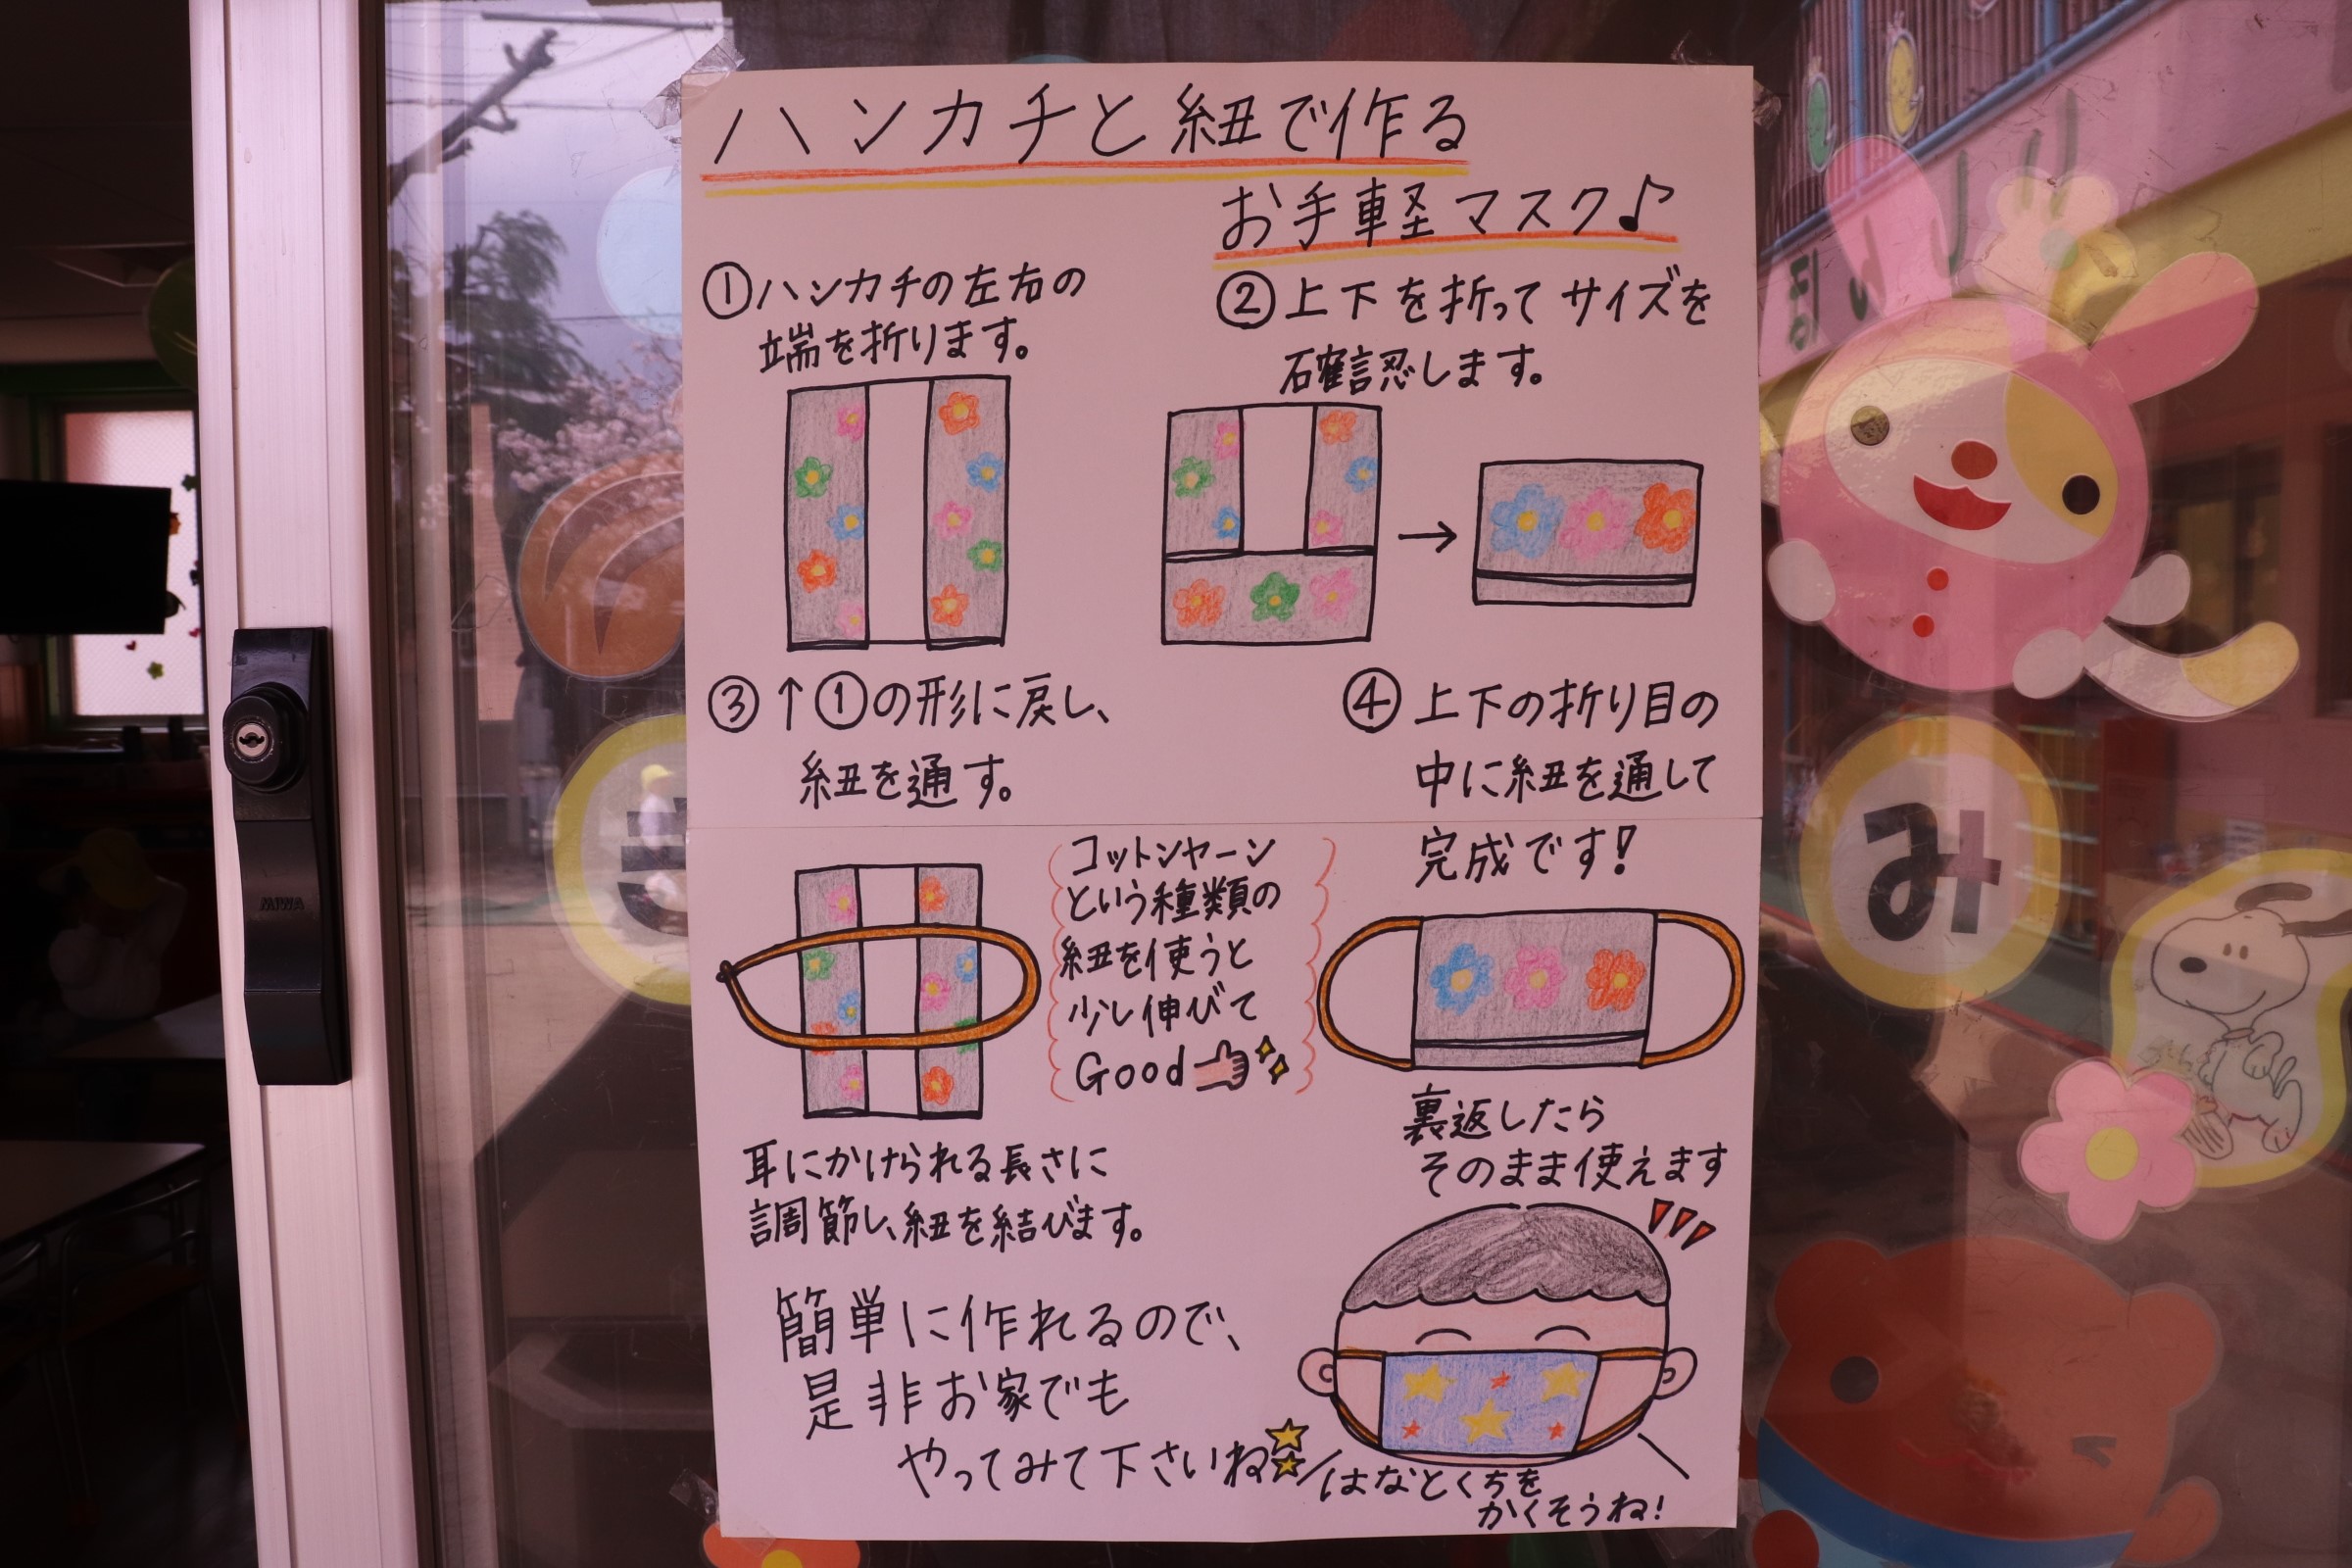 ハンカチと紐で作る
お手軽マスク♪
①ハンカチの左右の
端を折ります。
②上下を折ってサイズを
確認します。
→
③↑①の形に戻し、
紐を通す。
コットンヤーン
という種類の
紐を使うと
少し伸びて
Good
耳にかけられる長さに
調節し、紐を結びます。
④上下の折り目の
中に紐を通して
完成です!
裏返したら
そのまま使えます
簡単に作れるので、
是非お家でも
やってみて下さいね
はなとくちを
かくそうね!
み
MIWA